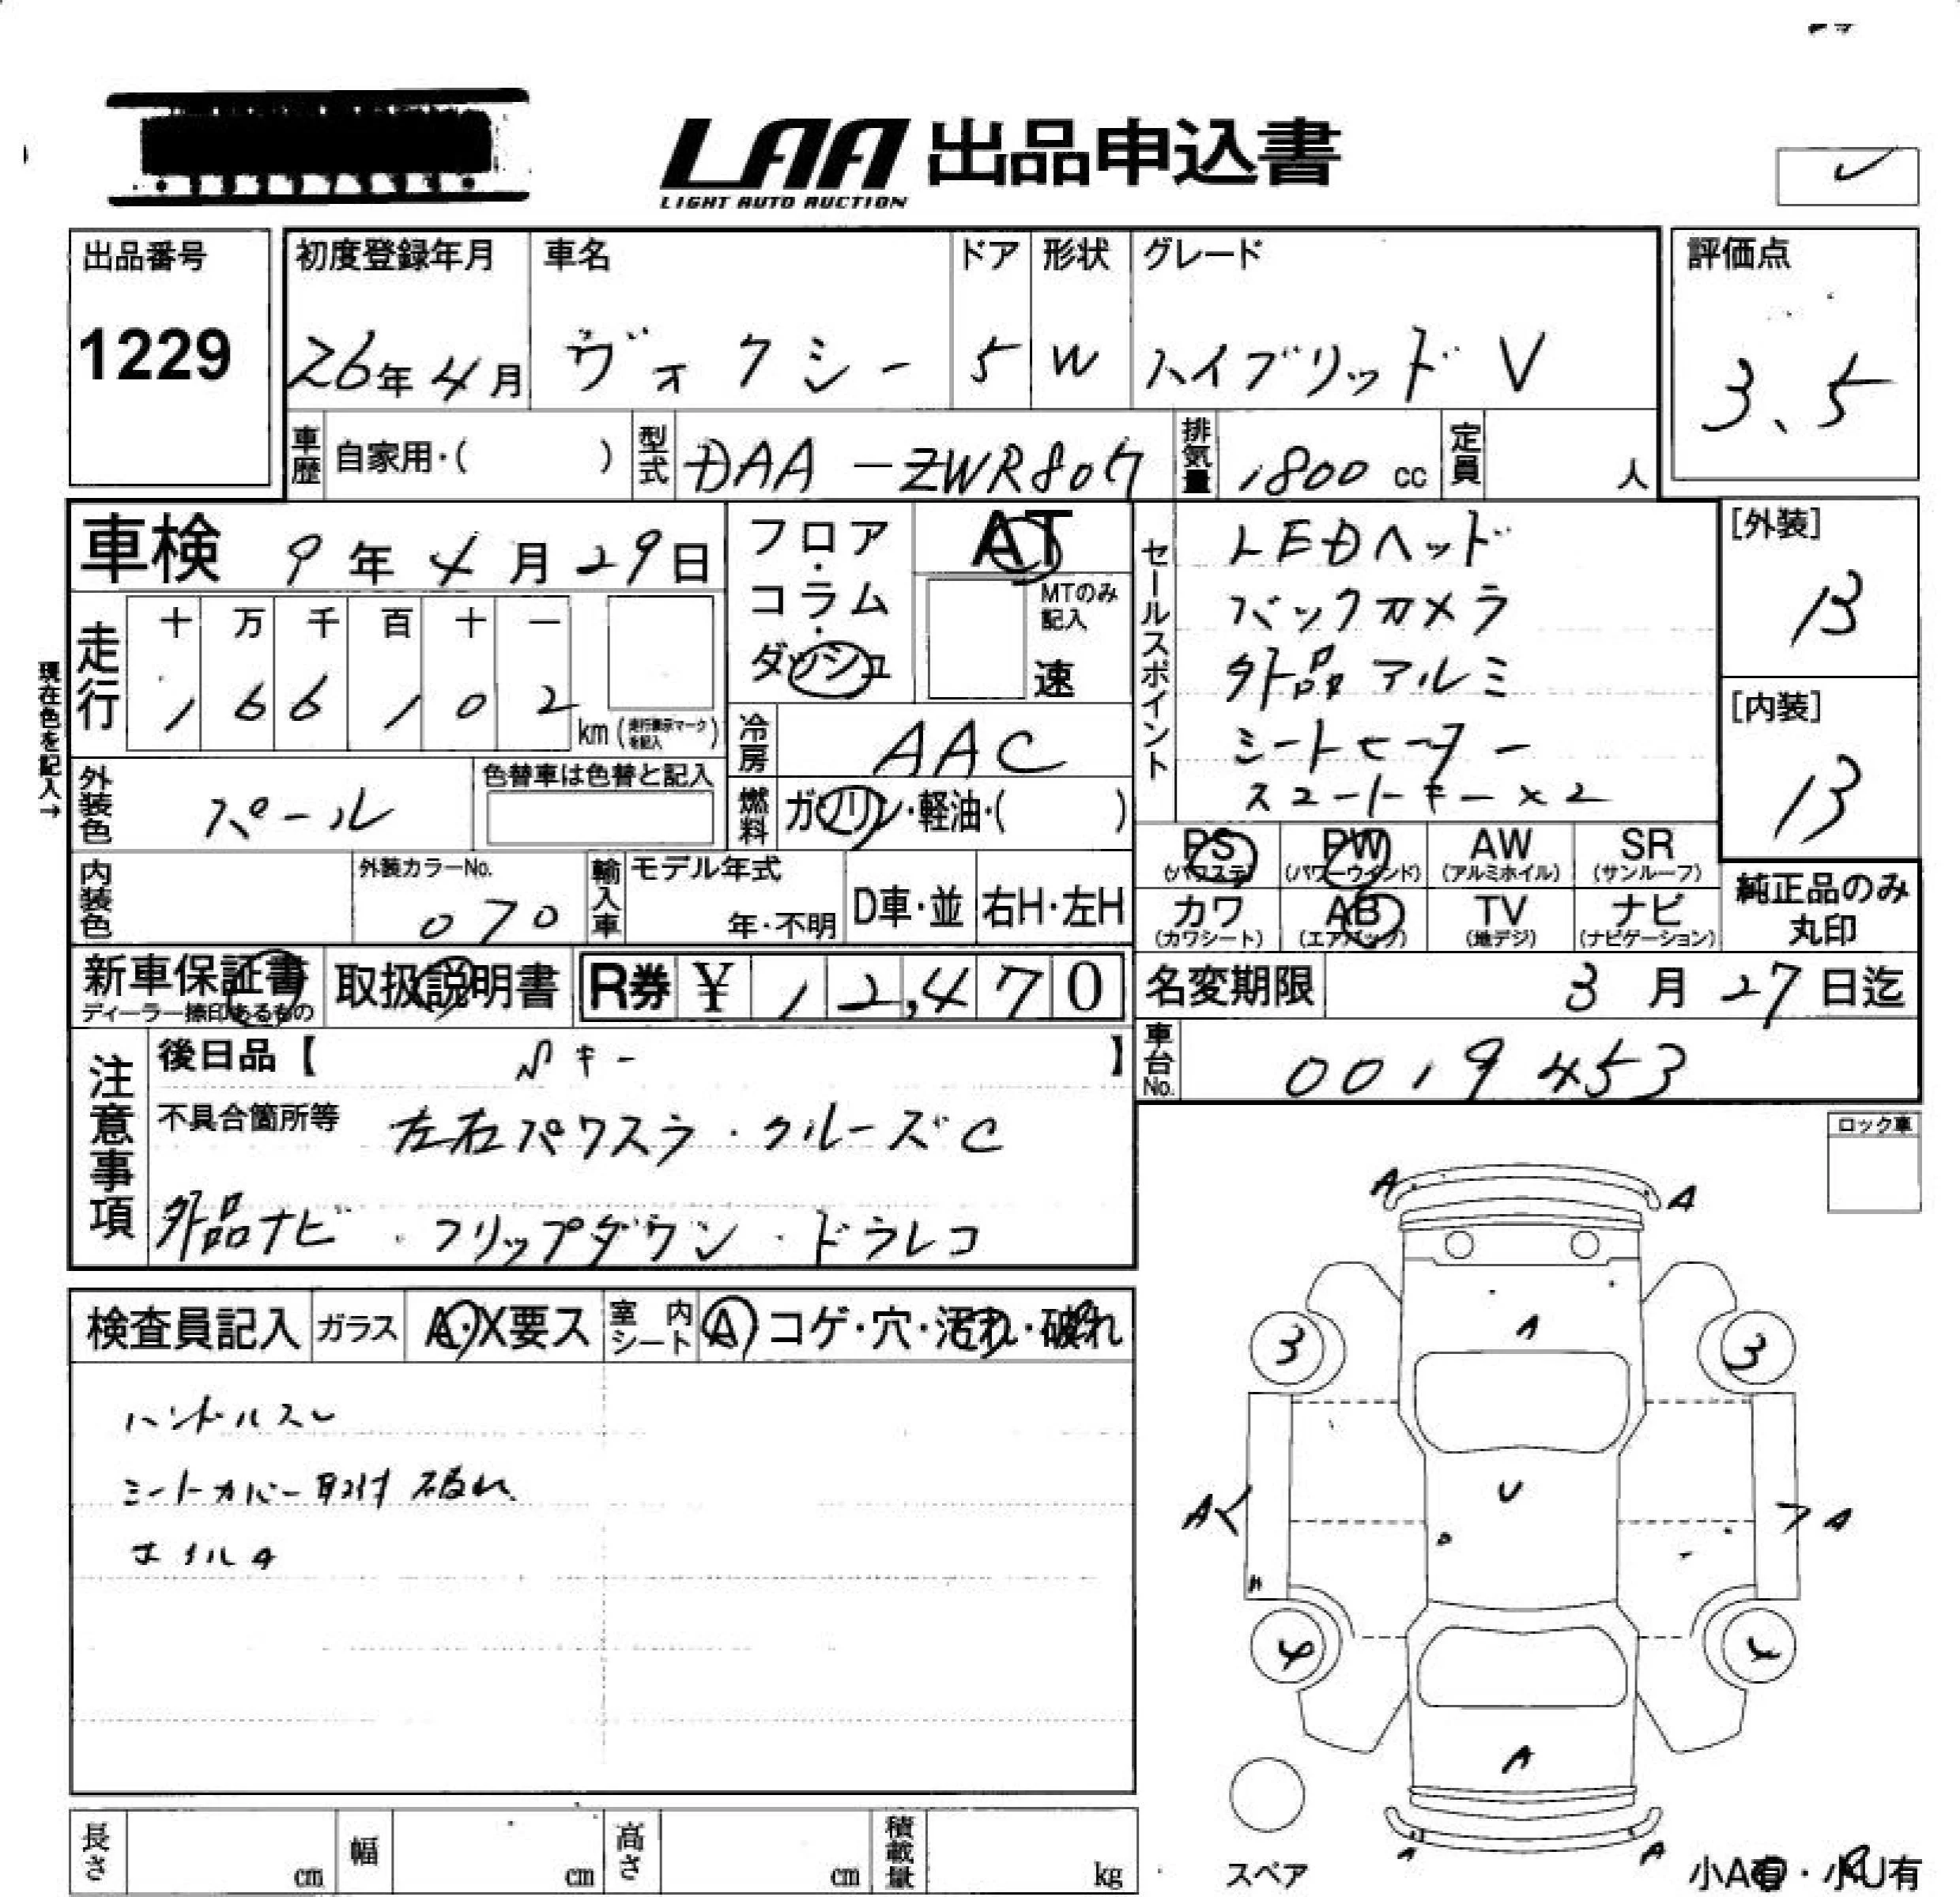 LAA 出品申込書
LIGHT AUTO AUCTION
出品番号
1229
初度登録年月
26年 4月
車名
ヴォクシー
ドア
5
形状
W
グレード
ハイブリッド V
評価点
3.5
車歴
自家用・( )
型式
DAA-ZWR80G
排気量
1800 cc
定員
人
車検 9年 4月 29日
走行
十 万 千 百 十 一
1 6 6 1 0 2 km (走行表示マークを記入)
現在色を記入→
フロア・コラム・ダッシュ
AT
MTのみ記入
速
冷房
AAC
燃料
ガソリン・軽油・( )
外装色
パール
色替車は色替と記入
内装色
外装カラーNo.
070
輸入車
モデル年式
年・不明
D車・並
右H・左H
セールスポイント
LEDヘッド
バックカメラ
外品アルミ
シートヒーター
スマートキー×2
[外装]
B
[内装]
B
PS
(パワステ)
PW
(パワーウインド)
AW
(アルミホイル)
SR
(サンルーフ)
カワ
(カワシート)
AB
(エアバック)
TV
(地デジ)
ナビ
(ナビゲーション)
純正品のみ
丸印
新車保証書
ディーラー捺印あるもの
取扱説明書
R券 ¥ 12,470
名変期限 3月 27日迄
車台No.
0019453
注意事項
後日品【 キー 】
不具合箇所等 左右パワスラ・クルーズC
外品ナビ・フリップダウン・ドラレコ
ロック車
検査員記入
ガラス
A・X要ス
室内シート
A コゲ・穴・汚れ・破れ
ハンドルスレ
シートカバー取付 破れ
ホイルA
A A
3 A 3
A U A
4 4
A
A A
スペア
小A有・小U有
長さ cm
幅 cm
高さ cm
積載量 kg